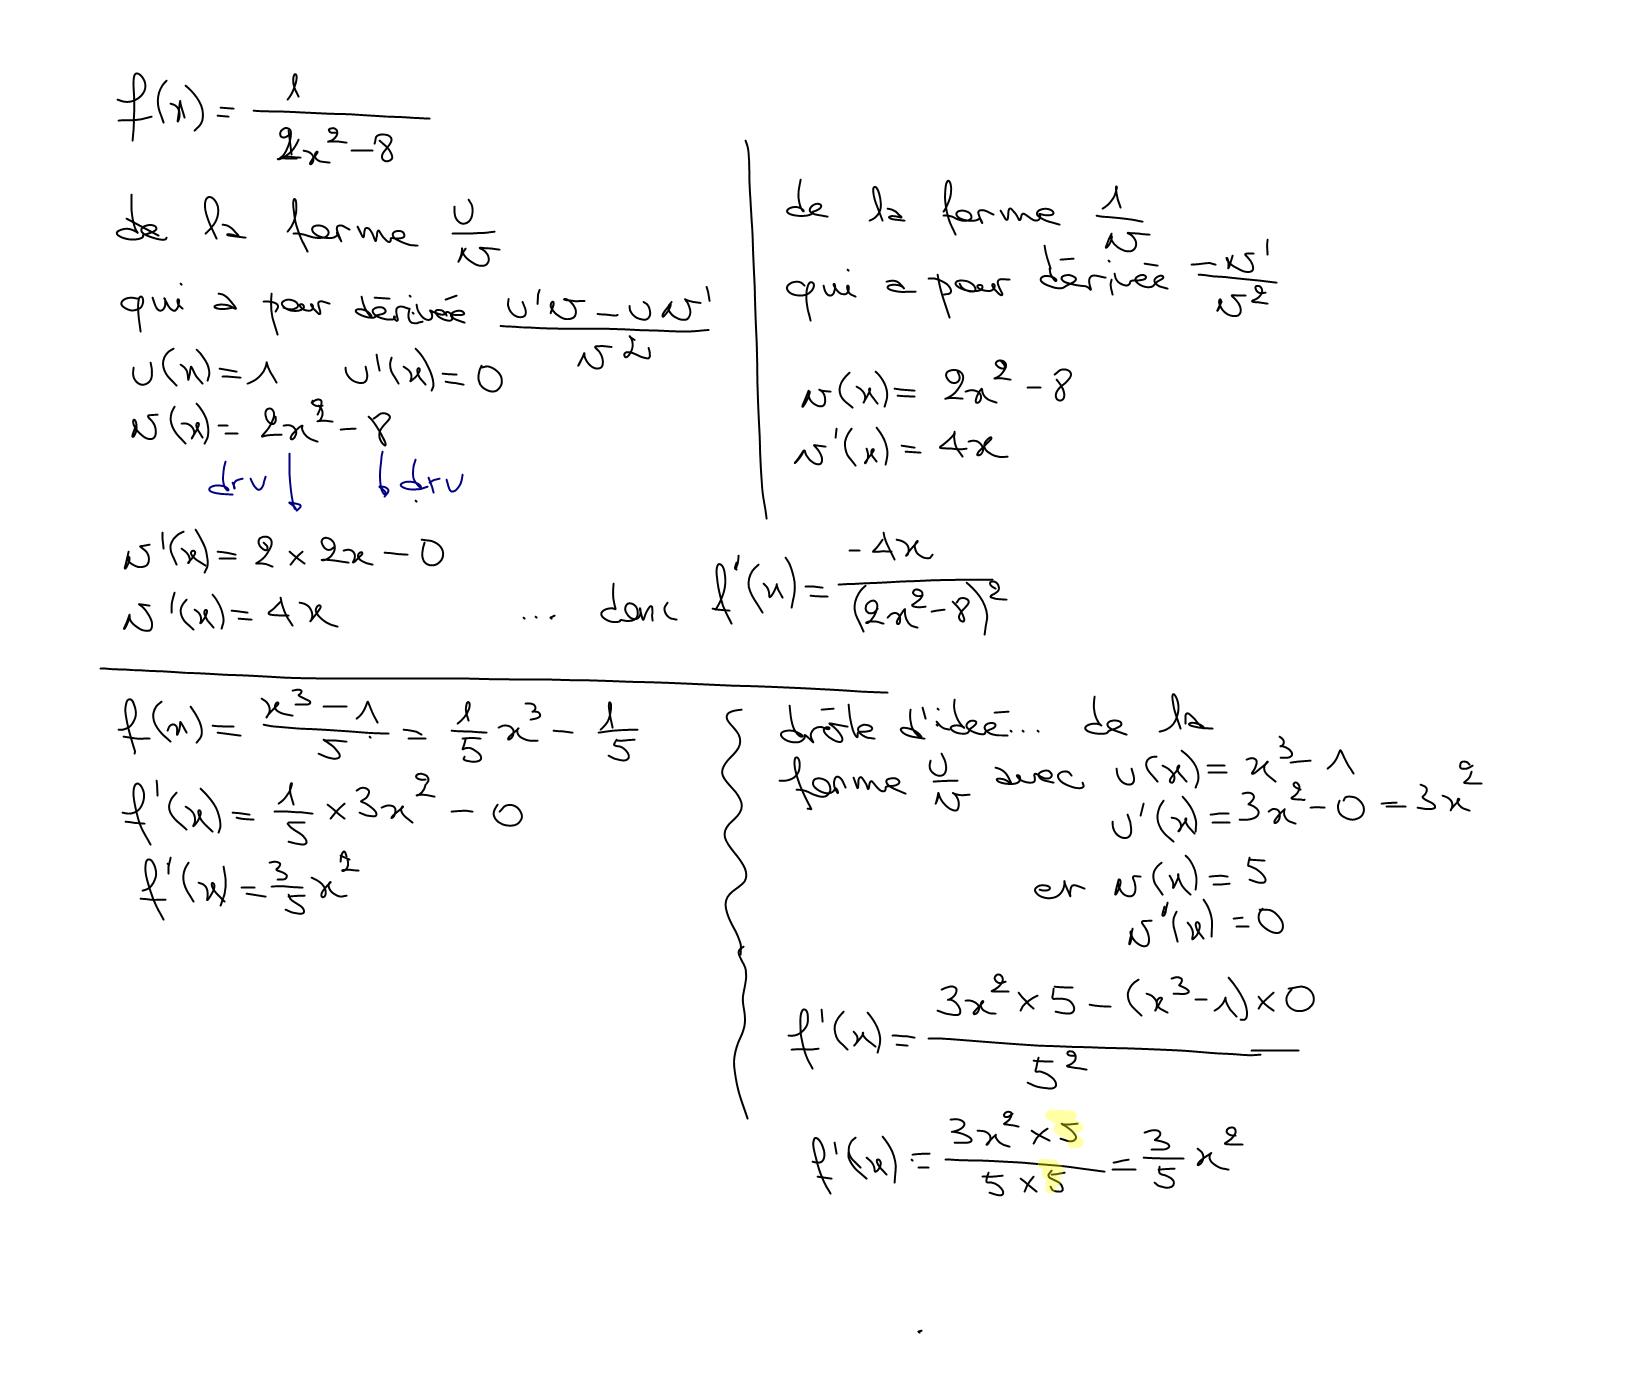 f(x) = 1/(2x² – 8)
de la forme u/v
qui a pour dérivée (u'v – uv')/v²
u(x) = 1 u'(x) = 0
v(x) = 2x² – 8
drv drv
v'(x) = 2 × 2x – 0
v'(x) = 4x
de la forme 1/v
qui a pour dérivée –v'/v²
v(x) = 2x² – 8
v'(x) = 4x
... donc f'(x) = –4x/(2x² – 8)²
f(x) = (x³ – 1)/5 = 1/5 x³ – 1/5
f'(x) = 1/5 × 3x² – 0
f'(x) = 3/5 x²
drôle d'ideé... de la
forme u/v avec u(x) = x³ – 1
u'(x) = 3x² – 0 = 3x²
et v(x) = 5
v'(x) = 0
f'(x) = (3x² × 5 – (x³ – 1) × 0)/5²
f'(x) = (3x² × 5)/(5 × 5) = 3/5 x²